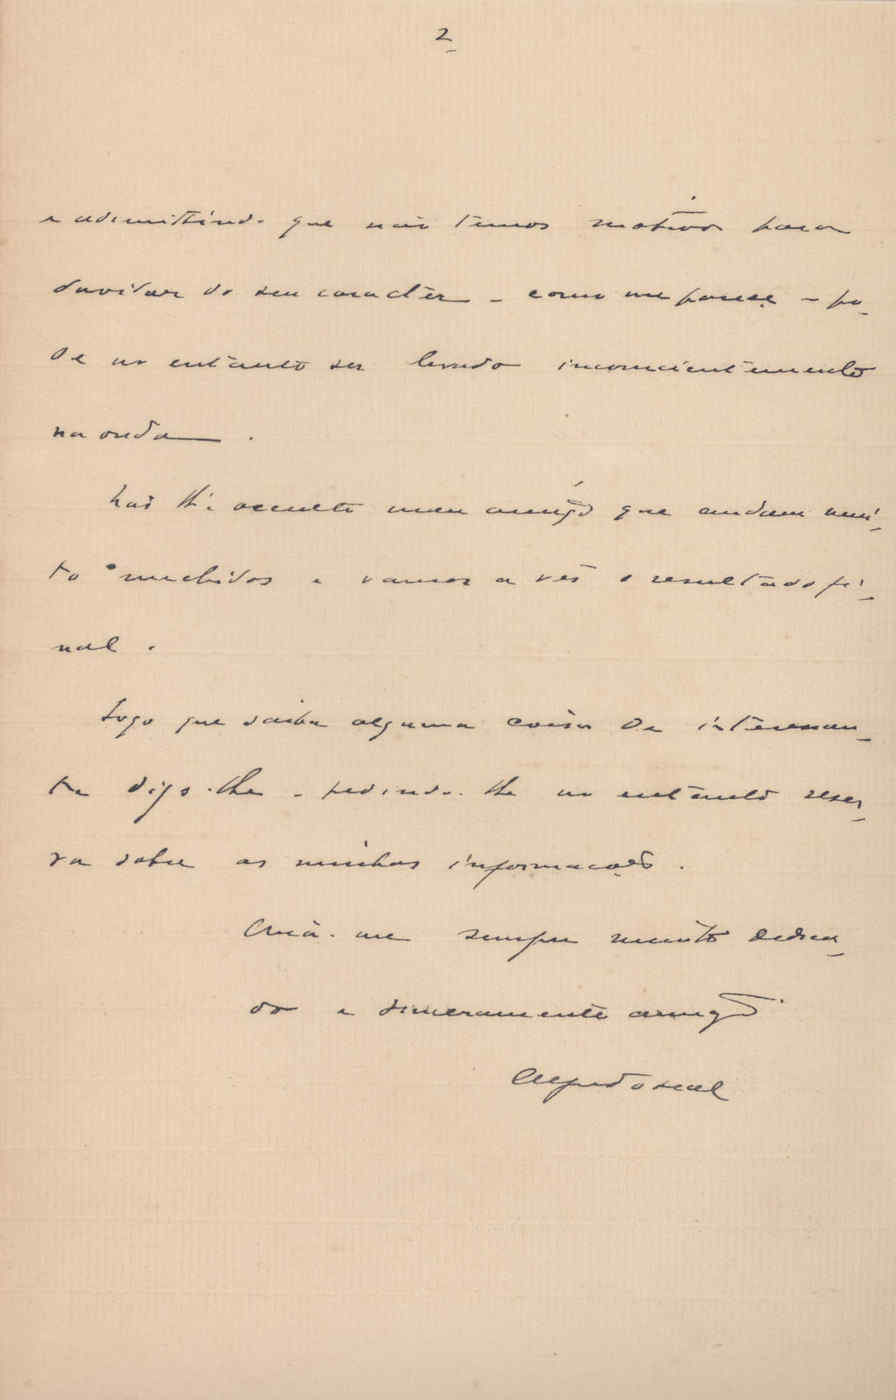 2
e admittindo que não temos motivos para
duvidar do seu caracter - como me parece - po-
de no entanto ser levado inconscientemente
na onda.
Não lhe occulto meu amigo que andam mui-
to mechidos e vamos a vêr o resultado fi-
nal.
Logo que saiba alguma coisa de interessan-
te digo-lhe - pedindo-lhe no entanto reser-
va sobre as minhas informações.
Creia-me sempre muito dedica-
do e sinceramente amigo
Alfredo Leal